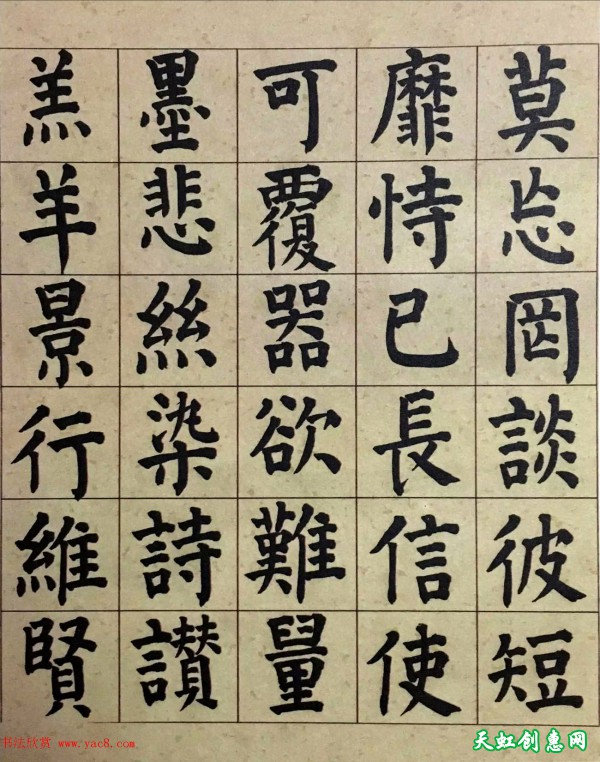 莫忘罔談彼短
靡恃己長信使
可覆器欲難量
墨悲絲染詩讚
羔羊景行維賢
书法欣赏 www.yac8.com
天虹创惠网